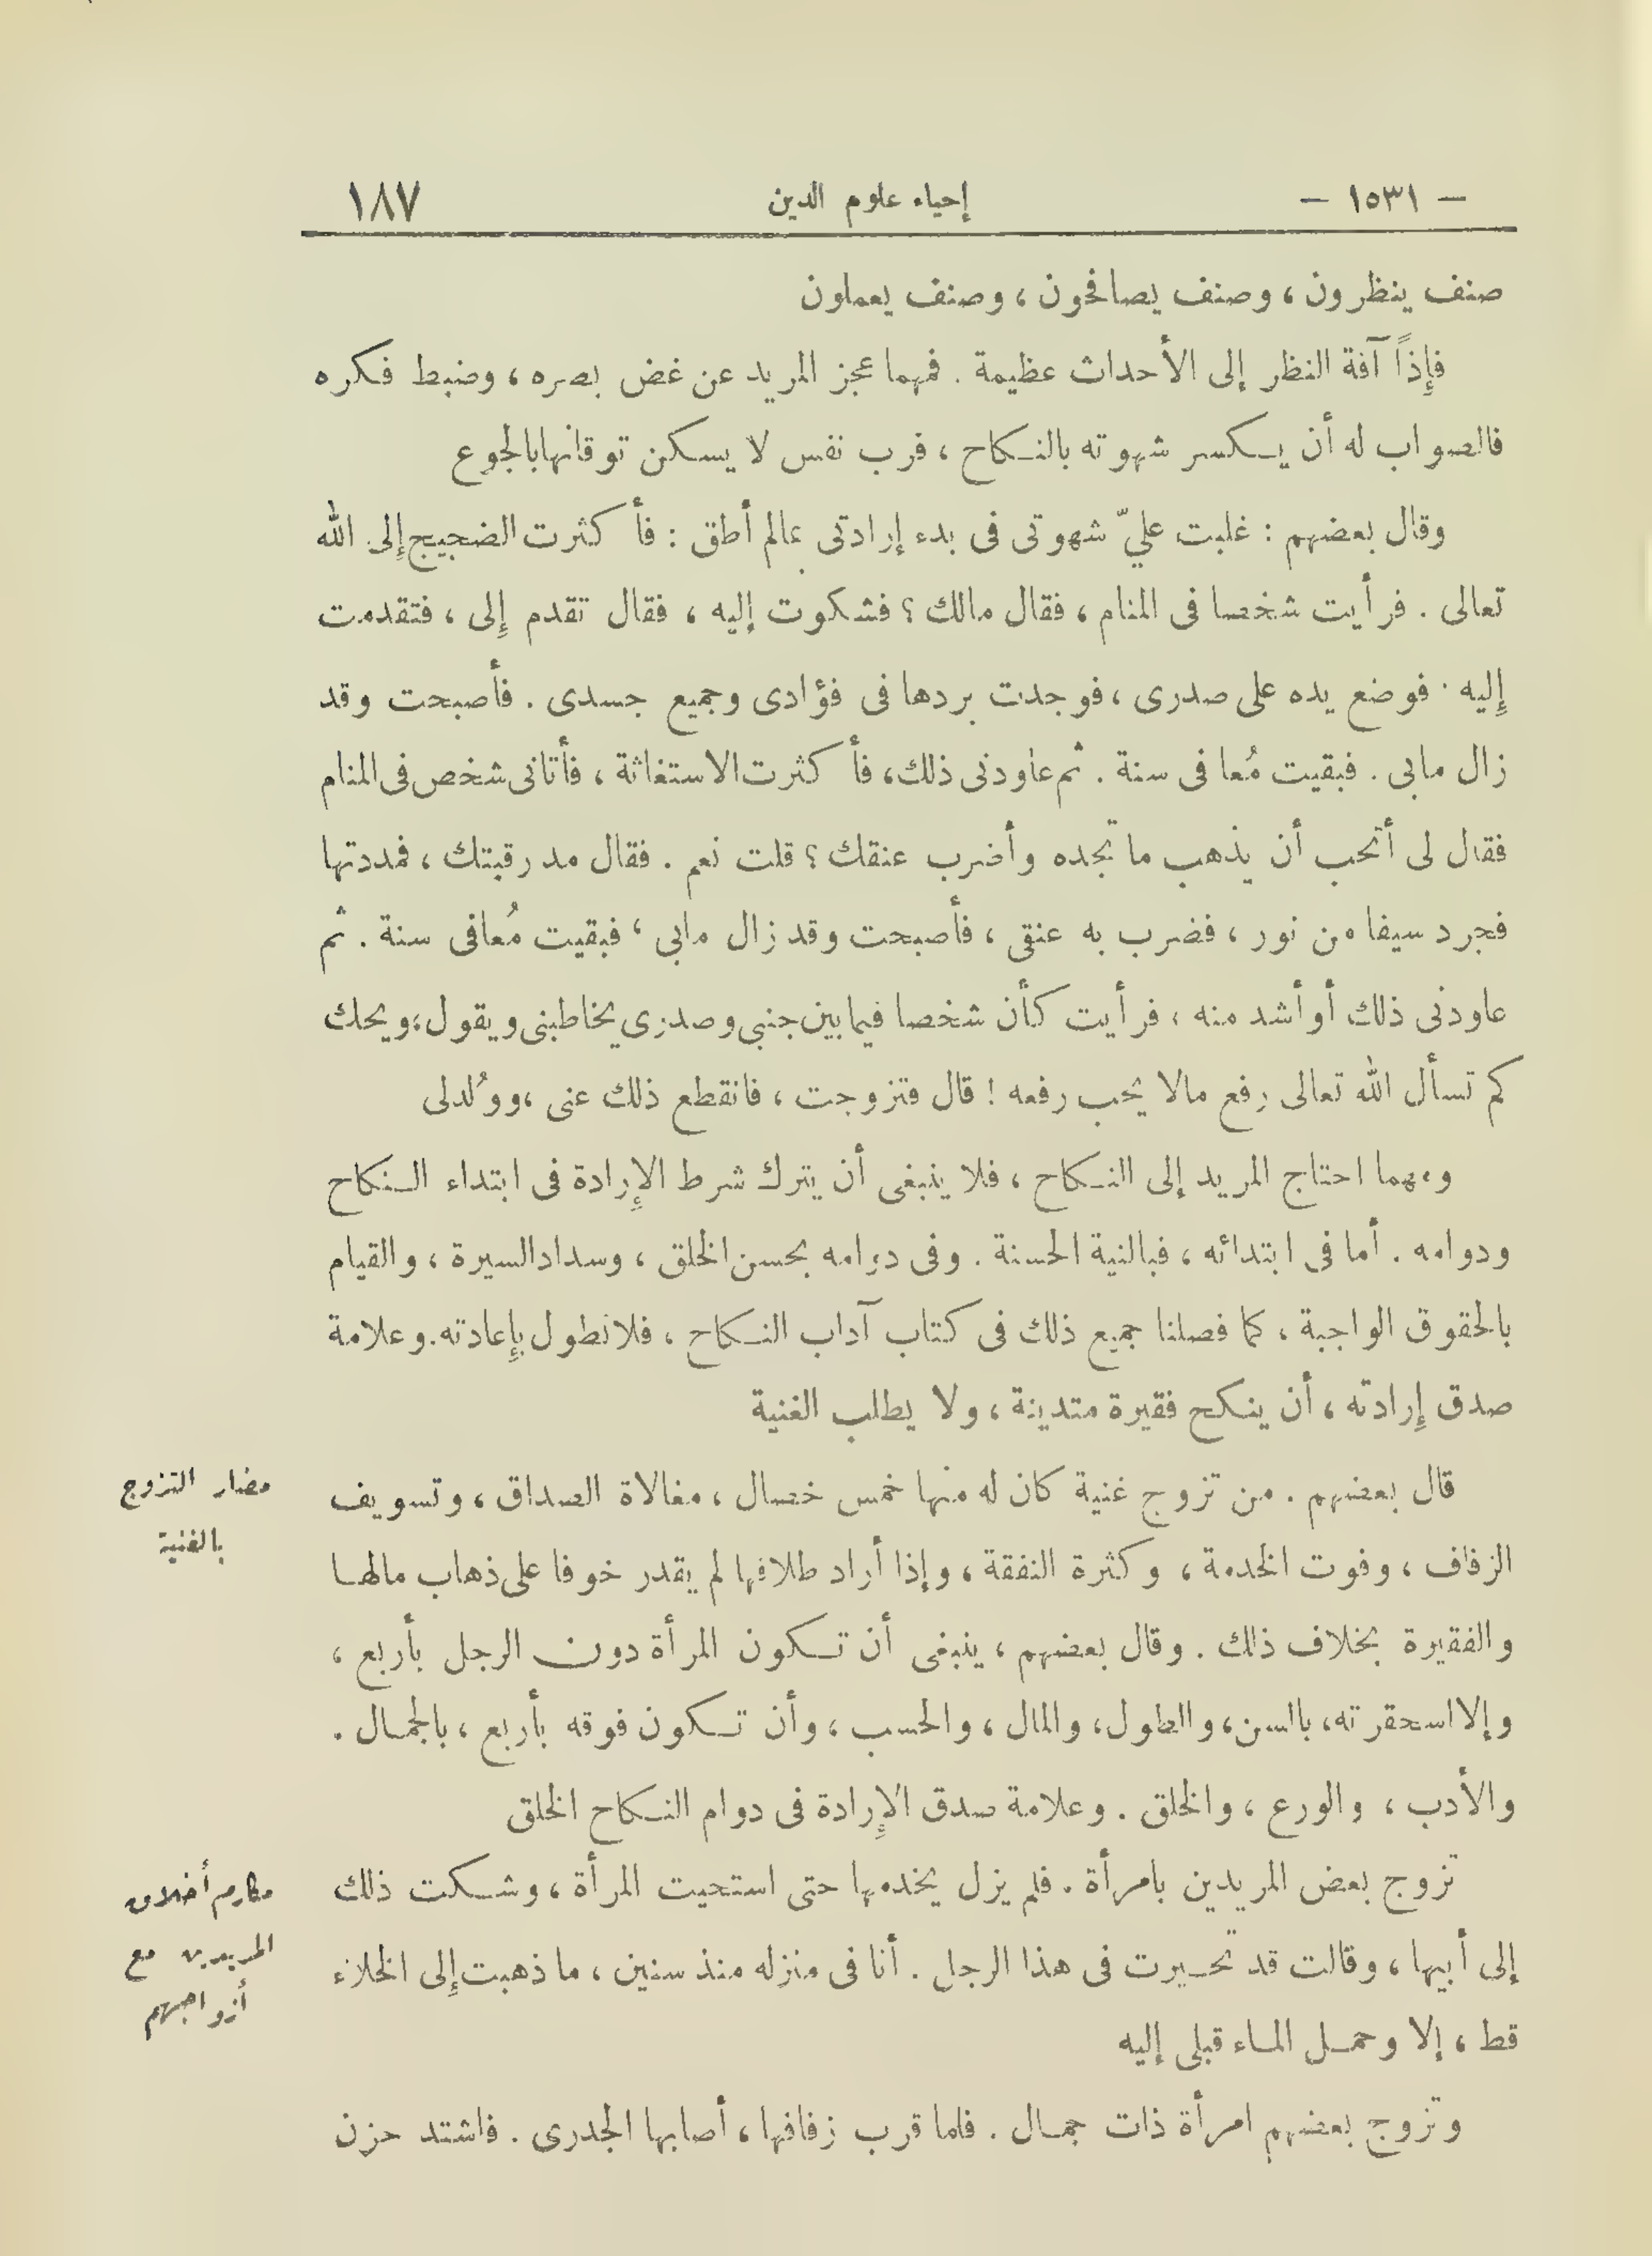 — ١٥٣١ — إحياء علوم الدين ١٨٧
صنف ينظرون ، وصنف يصافحون ، وصنف يعملون
فإِذاً آفة النظر إلى الأحداث عظيمة . فمهما عجز المريد عن غض بصره ، وضبط فكره
فالصواب له أن يكسر شهوته بالنكاح ، فرب نفس لا يسكن توقانها بالجوع
وقال بعضهم : غلبت عليّ شهوتى فى بدء إرادتى بما لم أطق : فأكثرت الضجيج إِلى الله
تعالى . فرأيت شخصا فى المنام ، فقال مالك ؟ فشكوت إليه ، فقال تقدم إِلى ، فتقدمت
إِليه . فوضع يده على صدرى ، فوجدت بردها فى فؤادى وجميع جسدى . فأصبحت وقد
زال مابى . فبقيت مُعافى سنة . ثم عاودنى ذلك، فأكثرت الاستغاثة ، فأتانى شخص فى المنام
فقال لى أتحب أن يذهب ما تجده وأضرب عنقك ؟ قلت نعم . فقال مد رقبتك ، فمددتها
فجرد سيفا من نور ، فضرب به عنقى ، فأصبحت وقد زال مابى ، فبقيت مُعافى سنة . ثم
عاودنى ذلك أو أشد منه ، فرأيت كأن شخصا فيما بين جنبى وصدرى يخاطبنى ويقول ، ويحك
كم تسأل الله تعالى رفع مالا يحب رفعه ! قال فتزوجت ، فانقطع ذلك عنى ، ووُلد لى
ومهما احتاج المريد إلى النكاح ، فلا ينبغى أن يترك شرط الإِرادة فى ابتداء النكاح
ودوامه . أما فى ابتدائه ، فبالنية الحسنة . وفى دوامه بحسن الخلق ، وسداد السيرة ، والقيام
بالحقوق الواجبة ، كما فصلنا جميع ذلك فى كتاب آداب النكاح ، فلا نطول بإِعادته. وعلامة
صدق إِرادته ، أن ينكح فقيرة متدينة ، ولا يطلب الغنية
مضار التزوج
بالغنية
قال بعضهم . من تزوج غنية كان له منها خمس خصال ، مغالاة الصداق ، وتسويف
الزفاف ، وفوت الخدمة ، وكثرة النفقة ، وإذا أراد طلاقها لم يقدر خوفا على ذهاب مالها
والفقيرة بخلاف ذلك . وقال بعضهم ، ينبغى أن تكون المرأة دون الرجل بأربع ،
وإلا اسحقرته، بالسن، والطول، والمال ، والحسب ، وأن تكون فوقه بأربع ، بالجمال .
والأدب ، والورع ، والخلق . وعلامة صدق الإِرادة فى دوام النكاح الخلق
مكارم أخلاق
المريدين مع
أزواجهم
تزوج بعض المريدين بامرأة . فلم يزل يخدمها حتى استحيت المرأة ، وشكت ذلك
إلى أبيها ، وقالت قد تحيرت فى هذا الرجل . أنا فى منزله منذ سنين ، ما ذهبت إِلى الخلاء
قط ، إلا وحمل الماء قبلى إليه
وتزوج بعضهم امرأة ذات جمال . فلما قرب زفافها ، أصابها الجدرى . فاشتد حزن